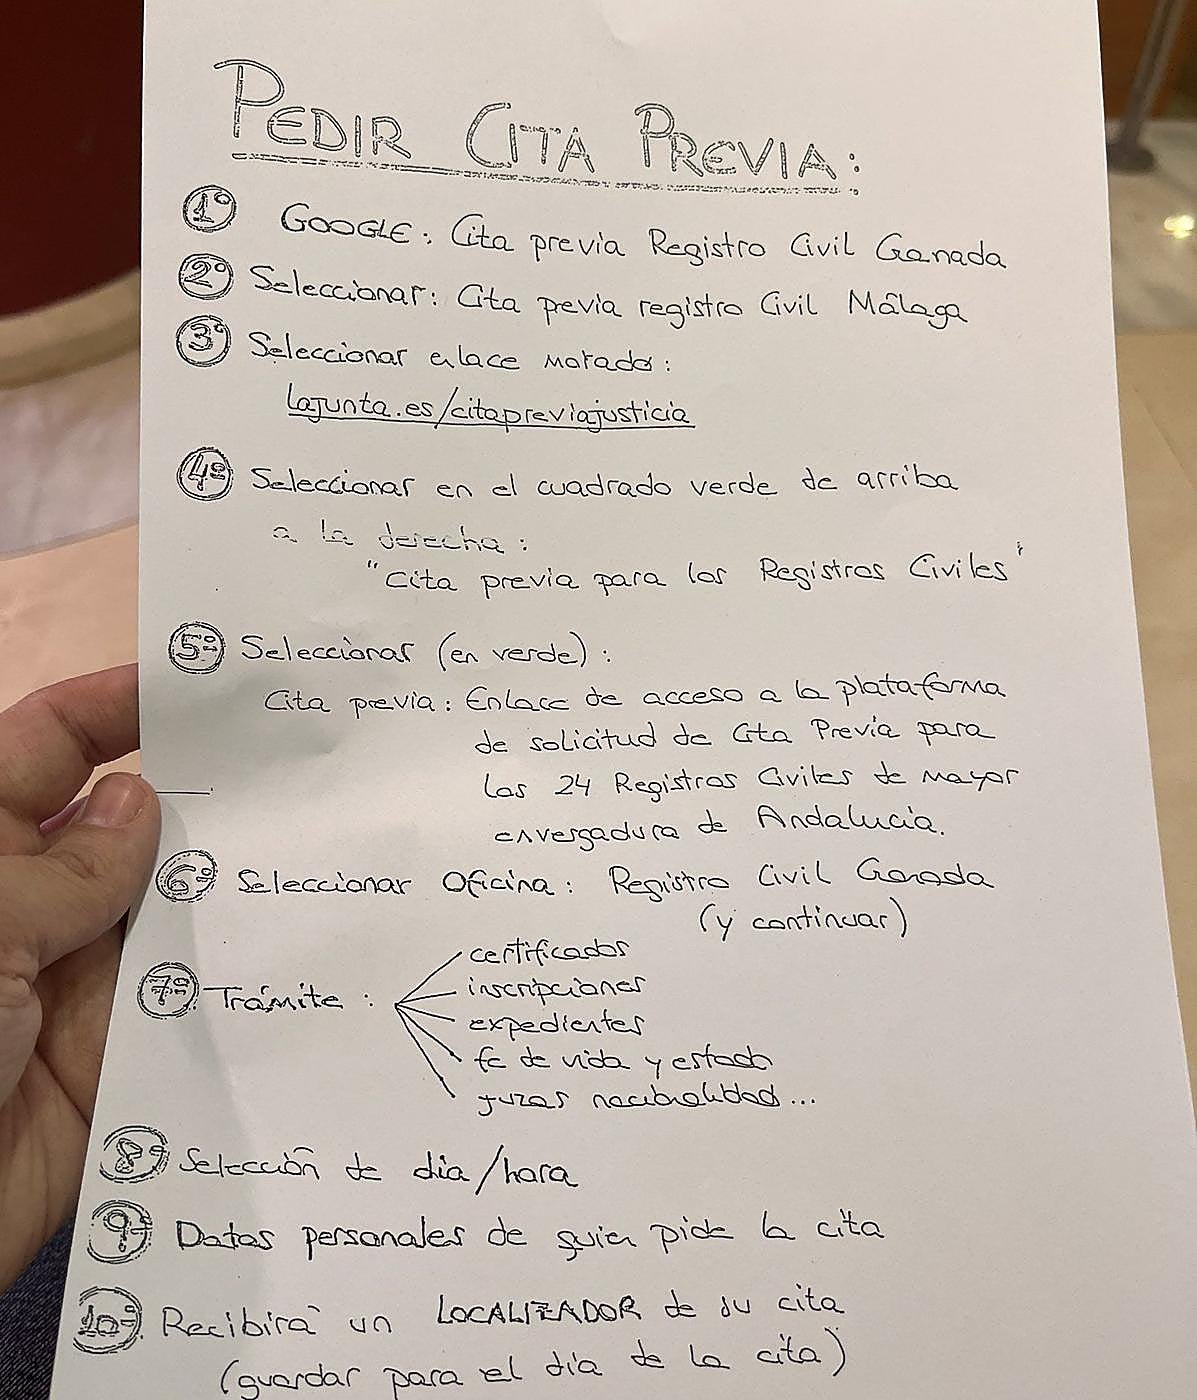 PEDIR CITA PREVIA:
1º GOOGLE: Cita previa Registro Civil Granada
2º Seleccionar: Cita previa registro Civil Málaga
3º Seleccionar enlace morado:
lajunta.es/citapreviajusticia
4º Seleccionar en el cuadrado verde de arriba
a la derecha:
"Cita previa para los Registros Civiles"
5º Seleccionar (en verde):
Cita previa: Enlace de acceso a la plataforma
de solicitud de Cita Previa para
los 24 Registros Civiles de mayor
envergadura de Andalucía.
6º Seleccionar Oficina: Registro Civil Granada
(y continuar)
certificados
inscripciones
7º Trámite:
expedientes
fe de vida y estado
juras nacionalidad...
8º Selección de día/hora
9º Datos personales de quien pide la cita
10º Recibirá un LOCALIZADOR de su cita
(guardar para el día de la cita)